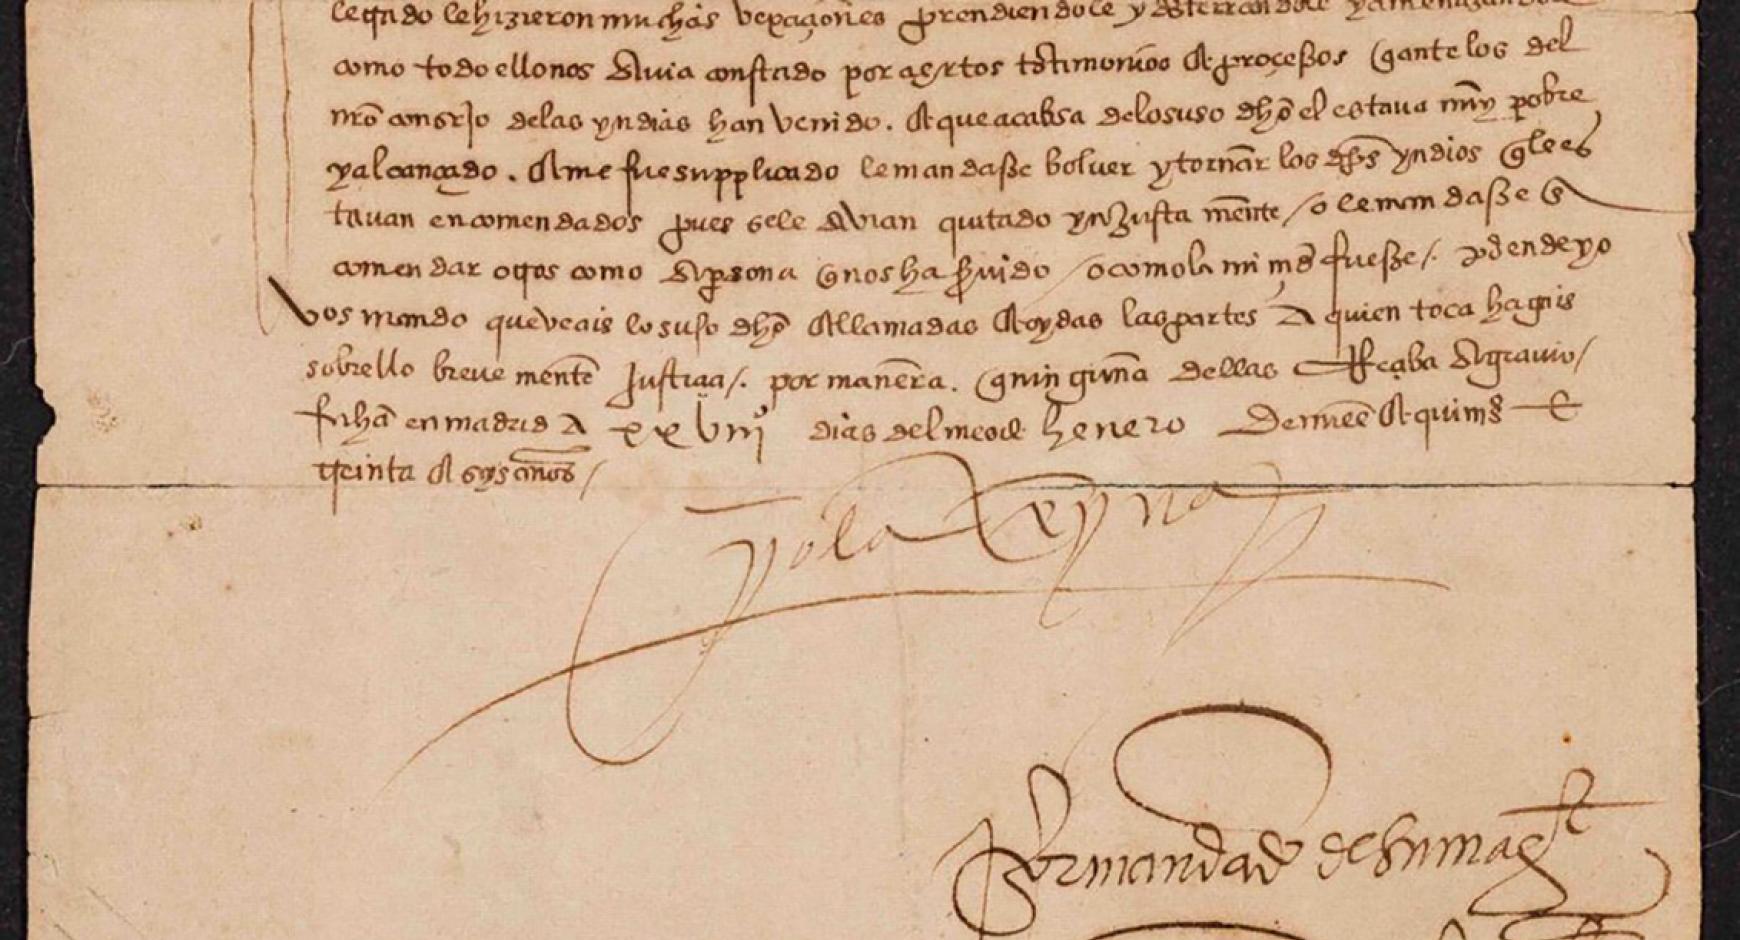 letrado le hizieron muchas vexaçiones prendiendole y desterrandole y amenazandole
como todo ello nos avia constado por çiertos testimonios e proçessos q̃ ante los del
nr̃o consejo de las yndias han venido. e que a cabsa de lo suso dho el estava muy pobre
y alcançado. e me fue supplicado le mandasse bolver y tornar los dhos yndios q̃ le es
tavan encomendados pues se le avian quitado ynjusta mente / o le mandasse en
comendar otros como a persona q̃ nos ha servido / o como la mi md̃ fuesse /. por ende yo
vos mando que veais lo suso dho e llamadas e oydas las partes a quien toca hagais
sobrello breve mente justiçia /. por manera. q̃ ninguna dellas Resçiba agravio /
fecha en madrid a xxviiiº dias del mes de henero de mill e quinios e
treinta e seys años /
yo la Reyna
Por mandado de Su magt